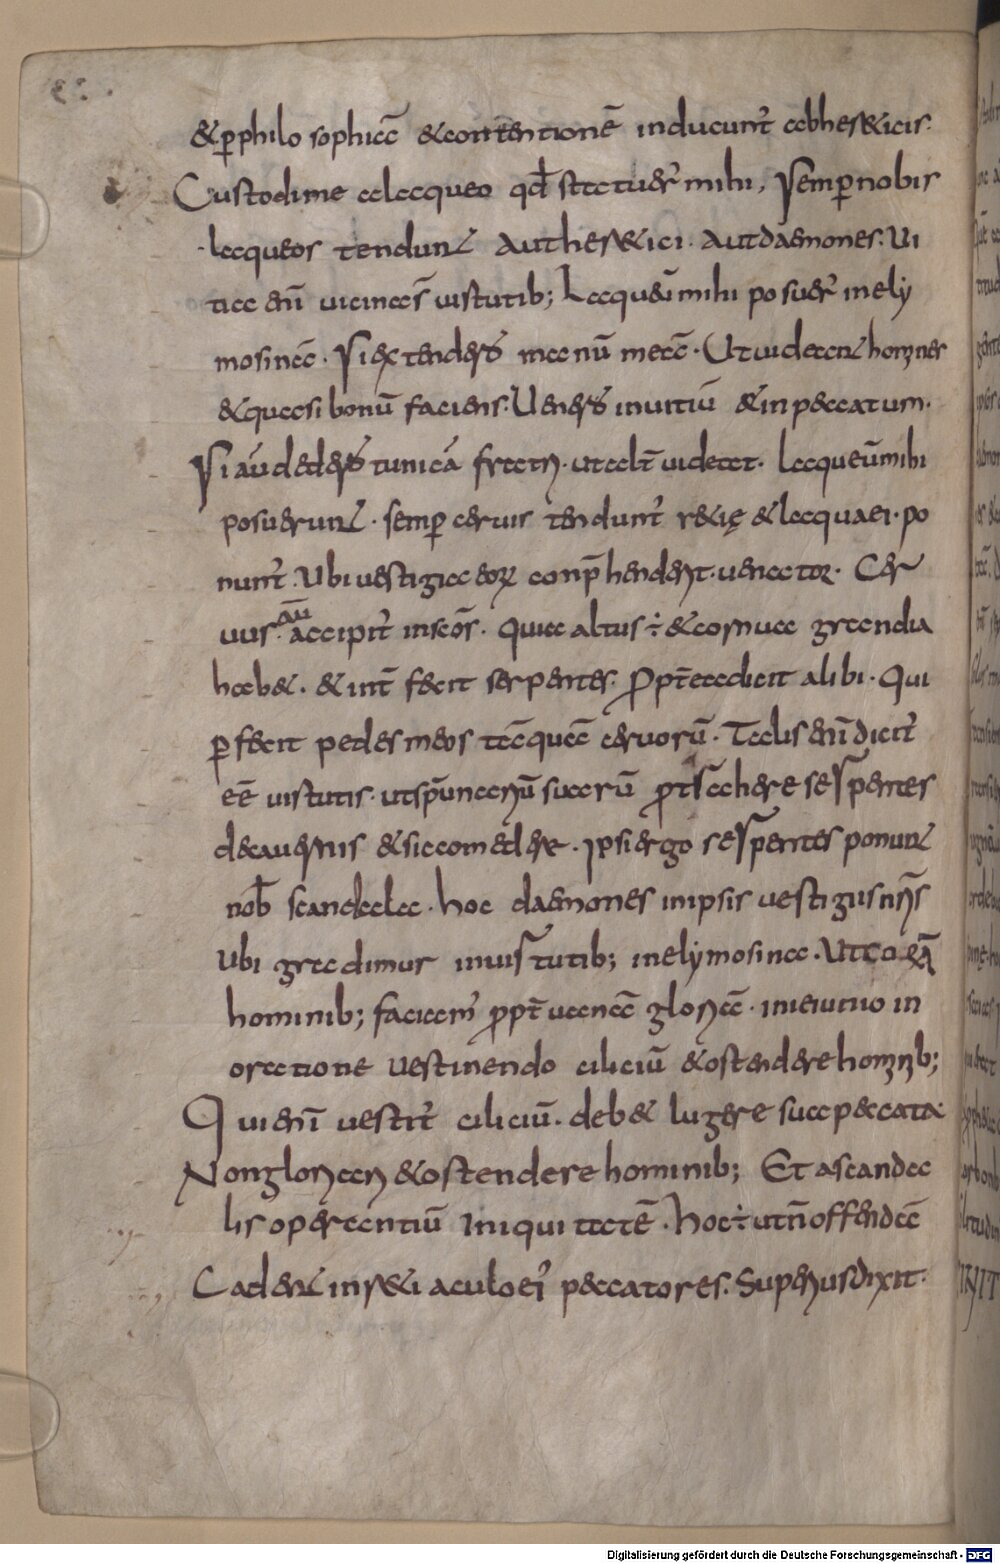 & p̱ philosophicā & contentionē inducunt̄ ab her&icis.
Custodi me a laqueo qd̄ statuer̄ mihi, Semp̱ nobis
laqueos tendunt aut her&ici. aut daemones. Ui
tia eni uicinas uirtutib; Laqueū mihi posuer̄ in ely
mosinā. Si extenderis manū meā. Ut uideant homines
& quasi bonū faciens. Ueneris in uitiū & in peccatum.
Si aū dederis tunicā fratri. ut alt̄ uidetat. laqueū mihi
posuerunt. semp̱ ceruis tendunt̄ r&ię & laquaei. po
nunt̄. Ubi uestigia eoꝝ conp̄henderit uenatoꝝ. Cer
uus aū accipit̄ in scōs. quia altus ÷ & cornua grandia
hab&. & int̄ fecit serpentes. Propt̄ ea dicit alibi. Qui
p̱fecit pedes meos tāquā ceruorū. Talis eni dicit̄
eē uirtutis. ut spūnariū suarū protrahere serpentes
de cauernis & sic comedere. ipsi ergo serpentes ponunt
nob̄ scandala. hoc daemones in ipsis uestigiis nr̄is
ubi gradimur in uirtutib; in elymosina. Ut corā
hominib; faciam̄ propt̄ uanā gloriā. in ieiunio in
oratione uestiendo ciliciū & ostendere hominib;
Qui eni uestit̄ ciliciū. deb& lugere sua peccata.
Non gloriari & ostendere hominib; Et a scanda
lis operantiū iniquitatē. hoc ÷ ut n̄ offendā
Cadent in r&iaculo ei᾽ peccatores. Superius dixit.
Digitalisierung gefördert durch die Deutsche Forschungsgemeinschaft - DFG